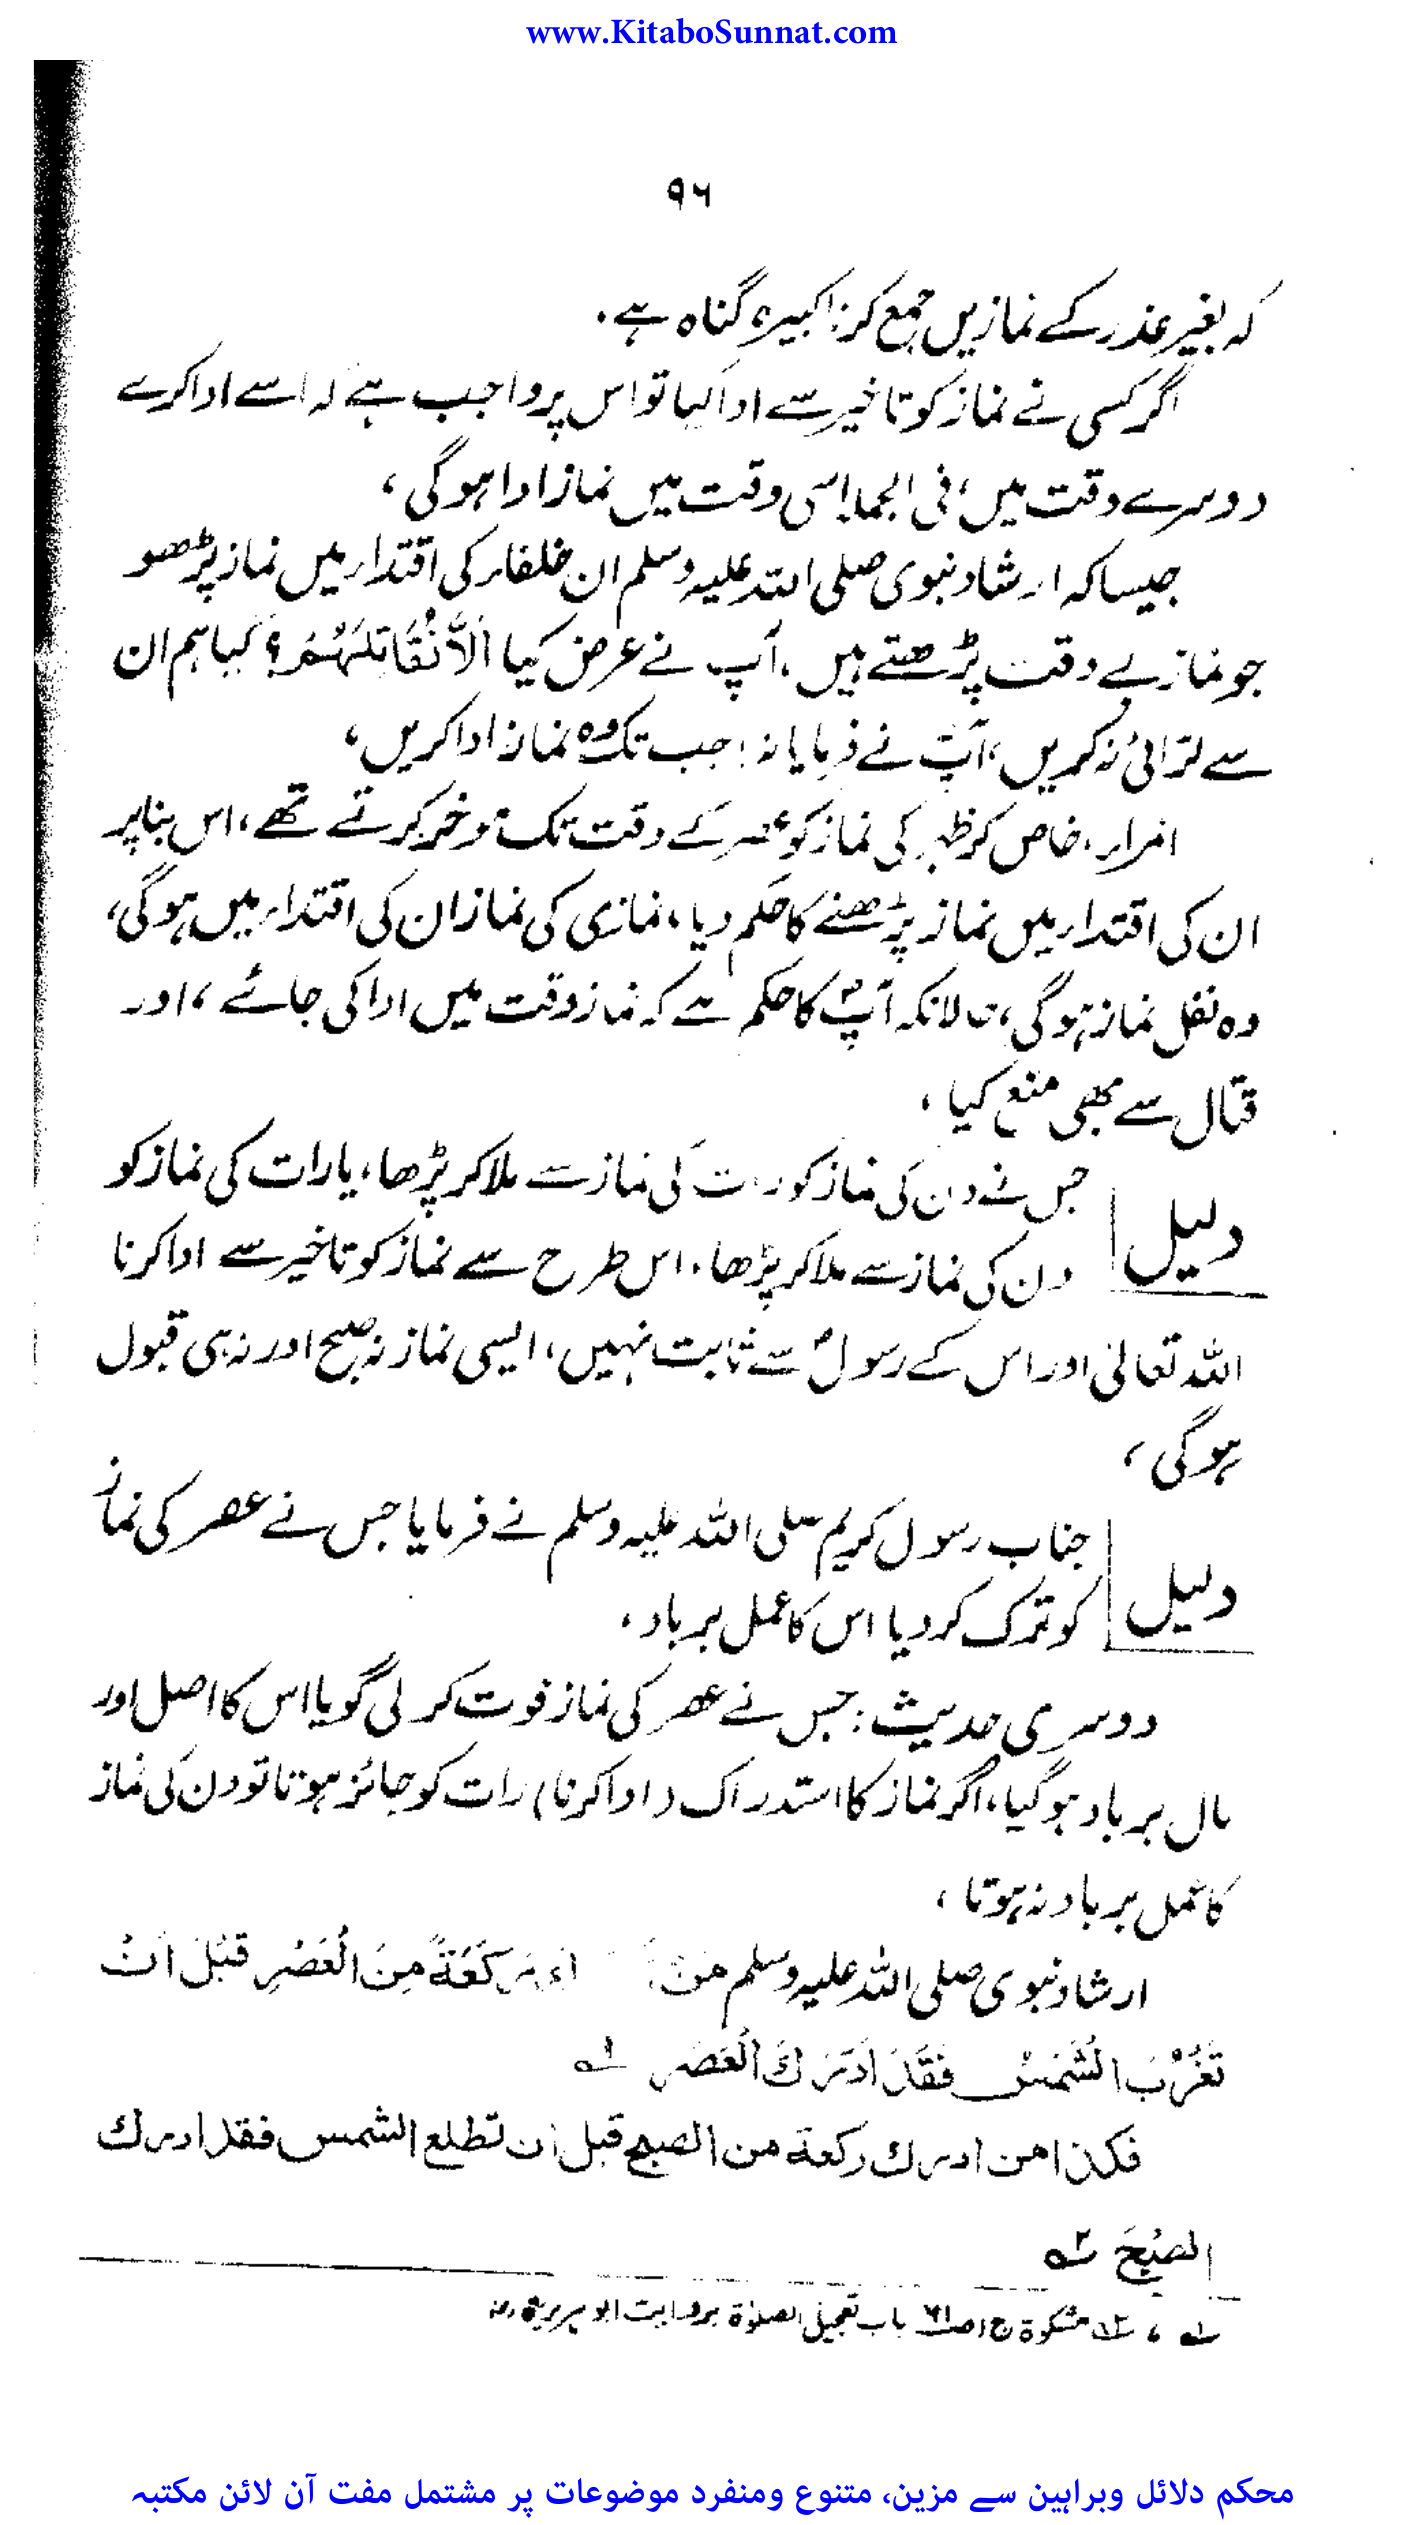 www.KitaboSunnat.com
۹۶
کہ بغیر عذر کے نمازیں جمع کرنا کبیرہ گناہ ہے.
اگر کسی نے نماز کو تاخیر سے ادا کیا تو اس پر واجب ہے کہ اسے ادا کرے
دوسرے وقت میں، فی الجملہ اسی وقت میں نماز ادا ہو گی،
جیسا کہ ارشاد نبوی صلی اللہ علیہ وسلم ان خلفاء کی اقتداء میں نماز پڑھو
جو نماز بے وقت پڑھتے ہیں، آپ نے عرض کیا اَلَّا نُقَاتِلَهُمْ؟ کیا ہم ان
سے لڑائی نہ کریں، آپؐ نے فرمایا نہ! جب تک وہ نماز ادا کریں،
امراء، خاص کر ظہر کی نماز کو عصر کے وقت تک مؤخر کرتے تھے، اس بنا پر
ان کی اقتداء میں نماز پڑھنے کا حکم دیا، نمازی کی نماز ان کی اقتداء میں ہو گی،
وہ نفل نماز ہو گی، حالانکہ آپؐ کا حکم ہے کہ نماز وقت میں ادا کی جائے، اور
قتال سے بھی منع کیا،
دلیل جس نے دن کی نماز کو رات کی نماز سے ملا کر پڑھا، یا رات کی نماز کو
دن کی نماز سے ملا کر پڑھا، اس طرح سے نماز کو تاخیر سے ادا کرنا
اللہ تعالیٰ اور اس کے رسولؐ سے ثابت نہیں، ایسی نماز نہ صحیح اور نہ ہی قبول
ہو گی،
دلیل جناب رسول کریم صلی اللہ علیہ وسلم نے فرمایا جس نے عصر کی نماز
کو ترک کر دیا اس کا عمل برباد،
دوسری حدیث: جس نے عصر کی نماز فوت کر لی گویا اس کا اصل اور
مال برباد ہو گیا، اگر نماز کا استدراک (ادا کرنا) رات کو جائز ہوتا تو دن کی نماز
کا عمل برباد نہ ہوتا،
ارشاد نبوی صلی اللہ علیہ وسلم مَنْ رَكْعَةً مِنَ الْعَصْرِ قَبْلَ اَنْ
تَغْرُبَ الشَّمْسُ فَقَدْ اَدْرَكَ الْعَصْرَ ۱؎
فكذا من ادرك ركعة من الصبح قبل ان تطلع الشمس فقد ادرك
الصُبْحَ ۲؎
۱؎، ۲؎ مشکوٰة ج۱ ص۶۱ باب تعجیل الصلوٰة بروایت ابو ہریرہؓ
محکم دلائل وبراہین سے مزین، متنوع ومنفرد موضوعات پر مشتمل مفت آن لائن مکتبہ